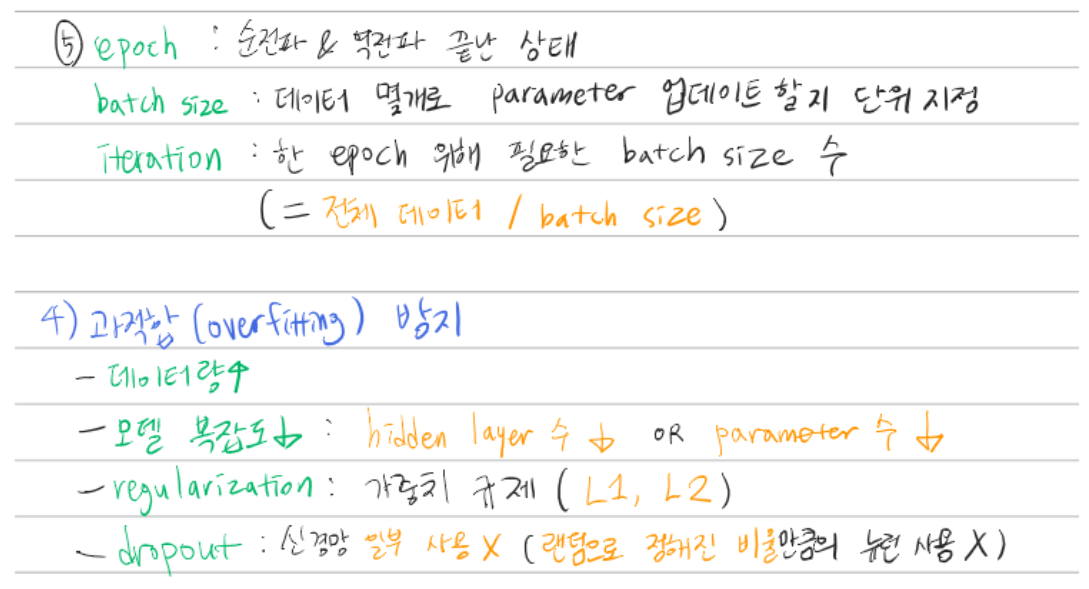 ⑤ epoch : 순전파 & 역전파 끝난 상태
batch size : 데이터 몇개로 parameter 업데이트 할지 단위 지정
iteration : 한 epoch 위해 필요한 batch size 수
(= 전체 데이터 / batch size)
4) 과적합 (overfitting) 방지
- 데이터량↑
- 모델 복잡도↓ : hidden layer 수 ↓ OR parameter 수 ↓
- regularization : 가중치 규제 (L1, L2)
- dropout : 신경망 일부 사용 X (랜덤으로 정해진 비율만큼의 뉴런 사용 X)